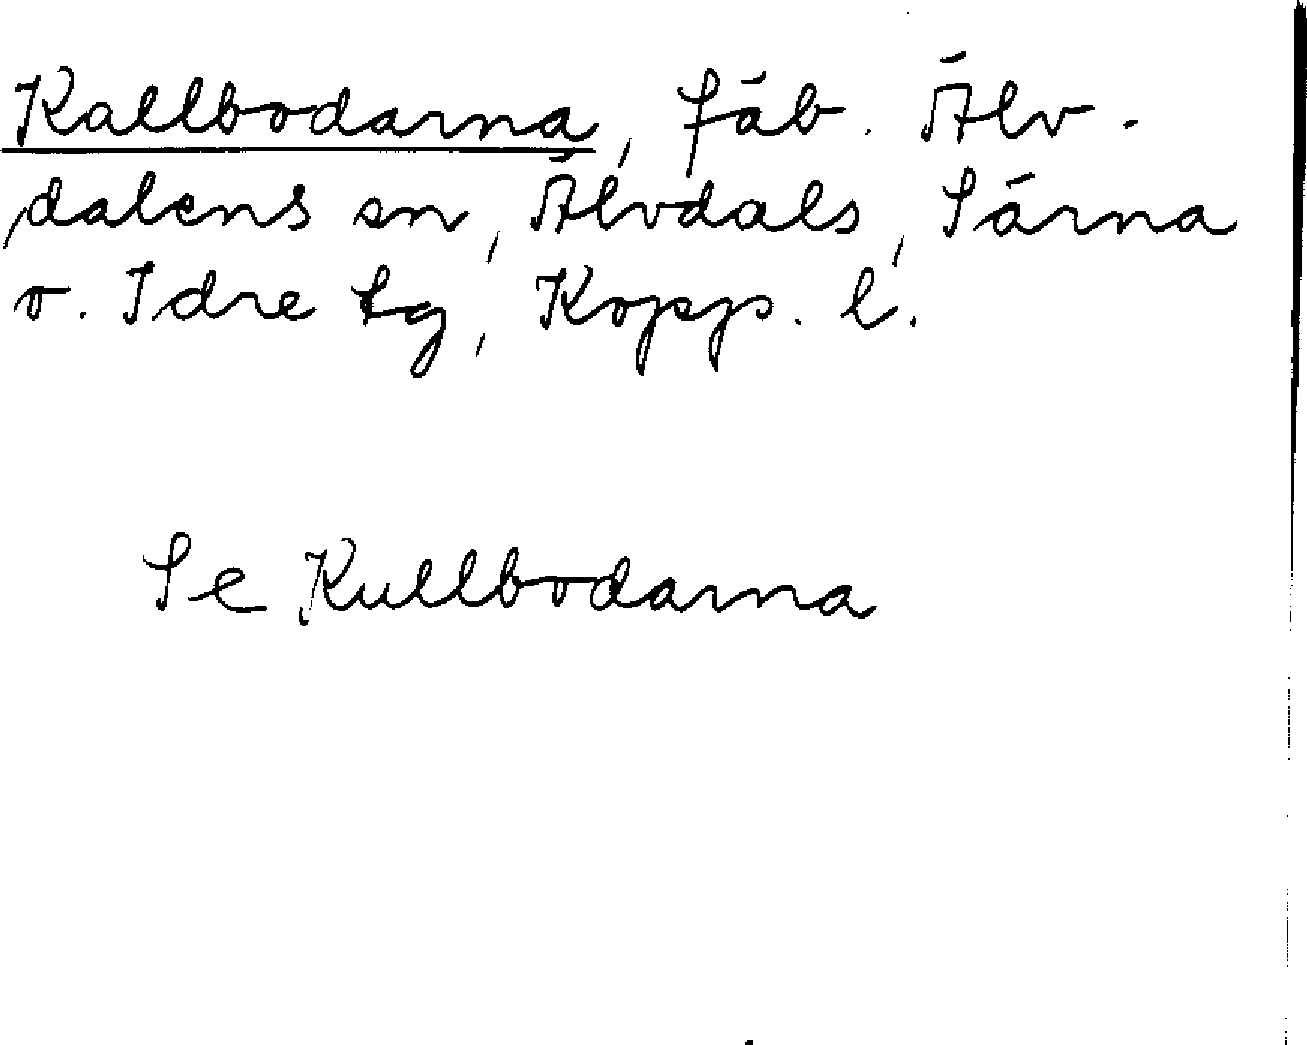 Kallbodarna, fäb. Älv-
dalens sn, Älvdals, Särna
o. Idre tg, Kopp. l.
Se Kullbodarna